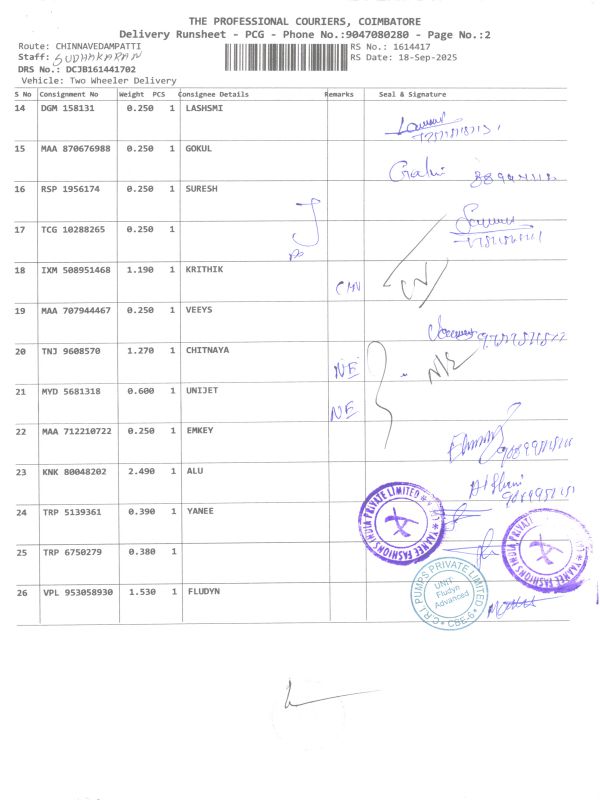 THE PROFESSIONAL COURIERS, COIMBATORE
Delivery Runsheet - PCG - Phone No.:9047080280 - Page No.:2
Route: CHINNAVEDAMPATTI
RS No.: 1614417
Staff: SUDHAKARAN
RS Date: 18-Sep-2025
DRS No.: DCJB161441702
Vehicle: Two Wheeler Delivery
S No Consignment No Weight PCS Consignee Details Remarks Seal & Signature
14 DGM 158131 0.250 1 LASHSMI
15 MAA 870676988 0.250 1 GOKUL
16 RSP 1956174 0.250 1 SURESH
17 TCG 10288265 0.250 1
18 IXM 508951468 1.190 1 KRITHIK
19 MAA 707944467 0.250 1 VEEYS
20 TNJ 9608570 1.270 1 CHITNAYA NE
21 MYD 5681318 0.600 1 UNIJET NE
22 MAA 712210722 0.250 1 EMKEY
23 KNK 80048202 2.490 1 ALU
24 TRP 5139361 0.390 1 YANEE
YANEE FASHIONS INDIA PRIVATE LIMITED
25 TRP 6750279 0.380 1
YANEE FASHIONS INDIA PRIVATE
26 VPL 953058930 1.530 1 FLUDYN
C.R.I. PUMPS PRIVATE LIMITED
UNIT
Fludyn
Advanced
CBE-6